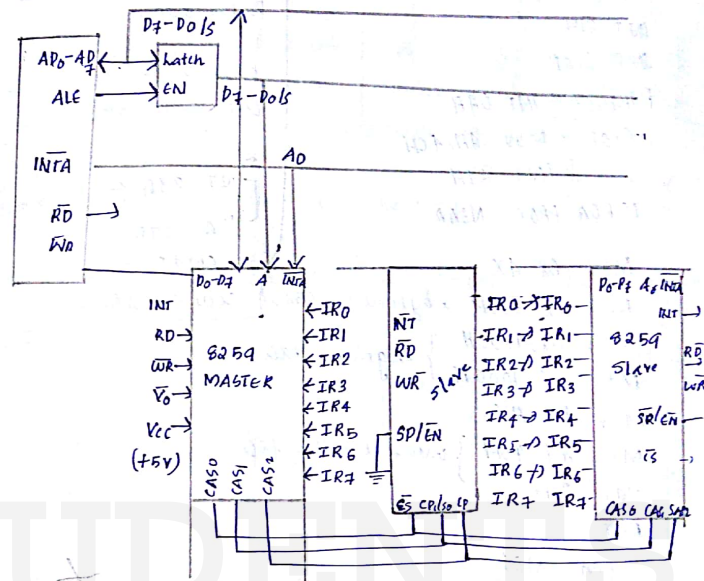 D7-D0/S
AD0-AD7
Latch
EN
ALE
D7-D0/S
INTA
A0
RD
WR
D0-D7 A INTA
INT
RD
WR
V0
Vcc
(+5V)
8259
MASTER
CAS0 CAS1 CAS2
IR0
IR1
IR2
IR3
IR4
IR5
IR6
IR7
INT
RD
WR
Slave
SP/EN
CS CP1/S0 CP
IR0 → IR0
IR1 → IR1
IR2 → IR2
IR3 → IR3
IR4 → IR4
IR5 → IR5
IR6 → IR6
IR7 IR7
D0-D7 A0 INTA
INT
8259
Slave
RD
WR
SR/EN
CS
CAS0 CAS1 SAS2
UDENTS